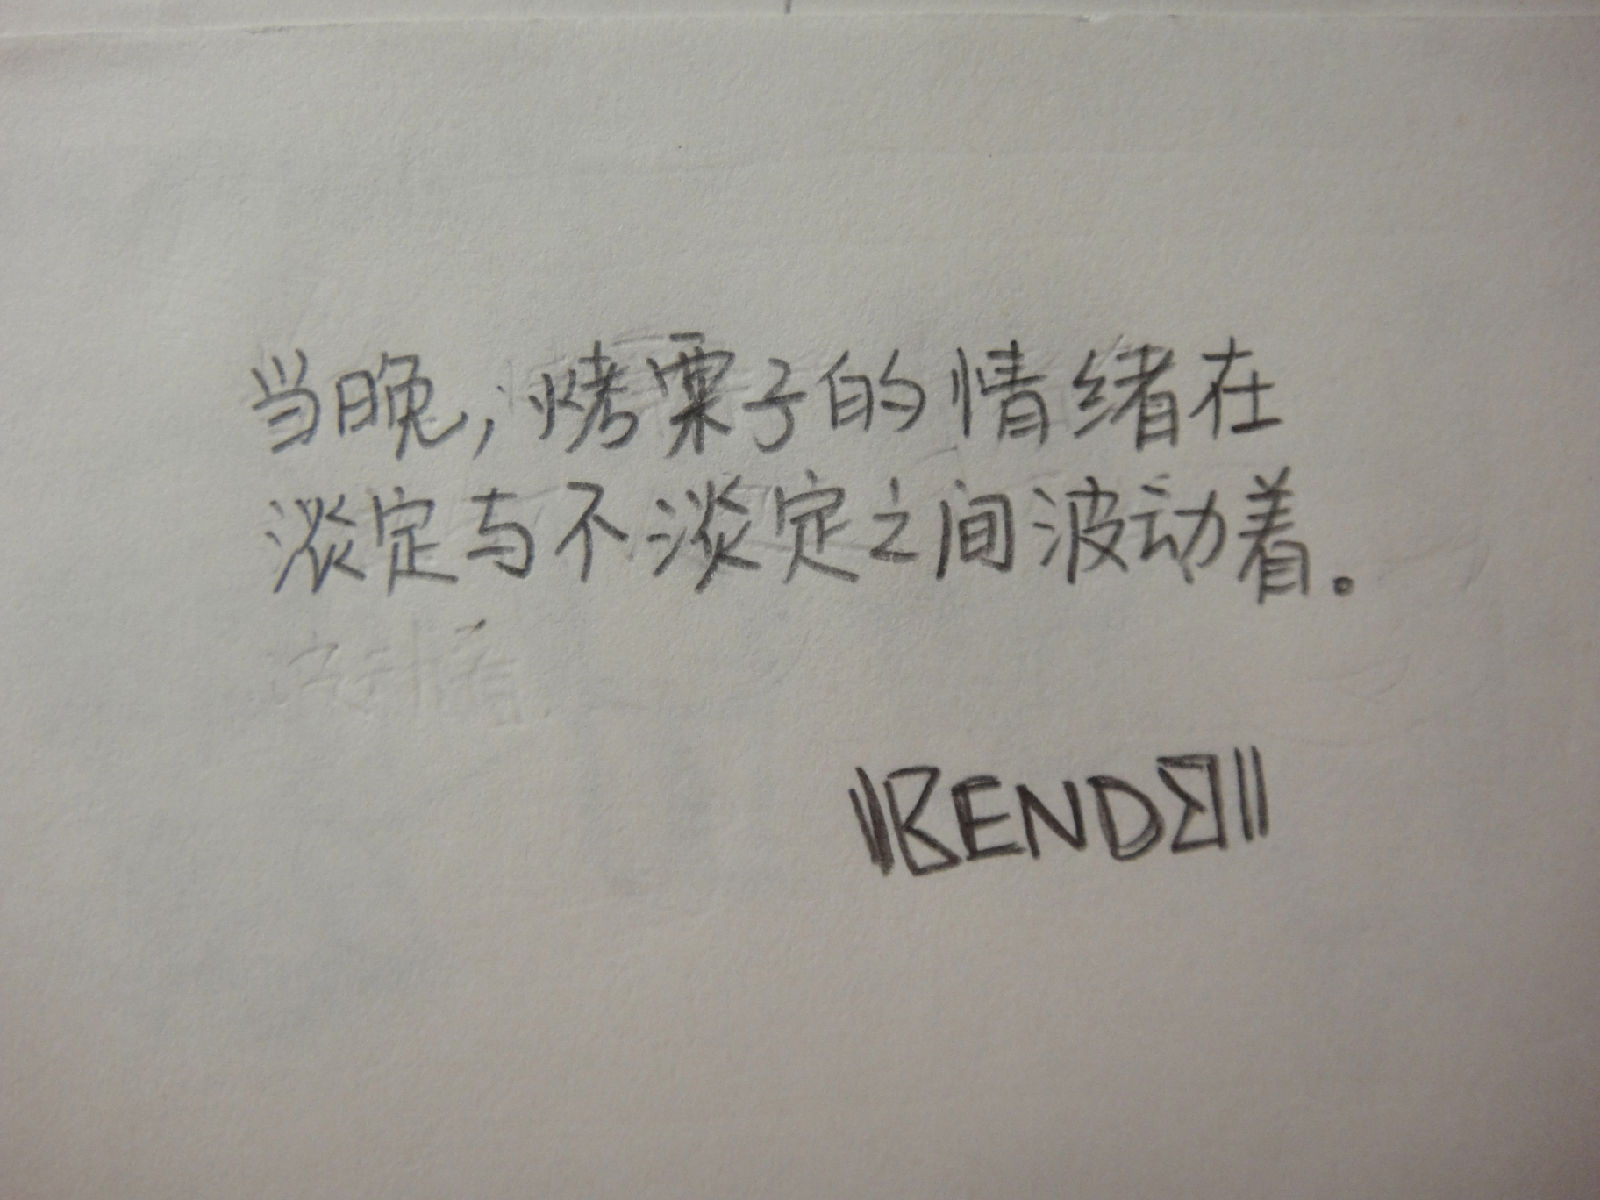 当晚，烤栗子的情绪在
淡定与不淡定之间波动着。
BENDB